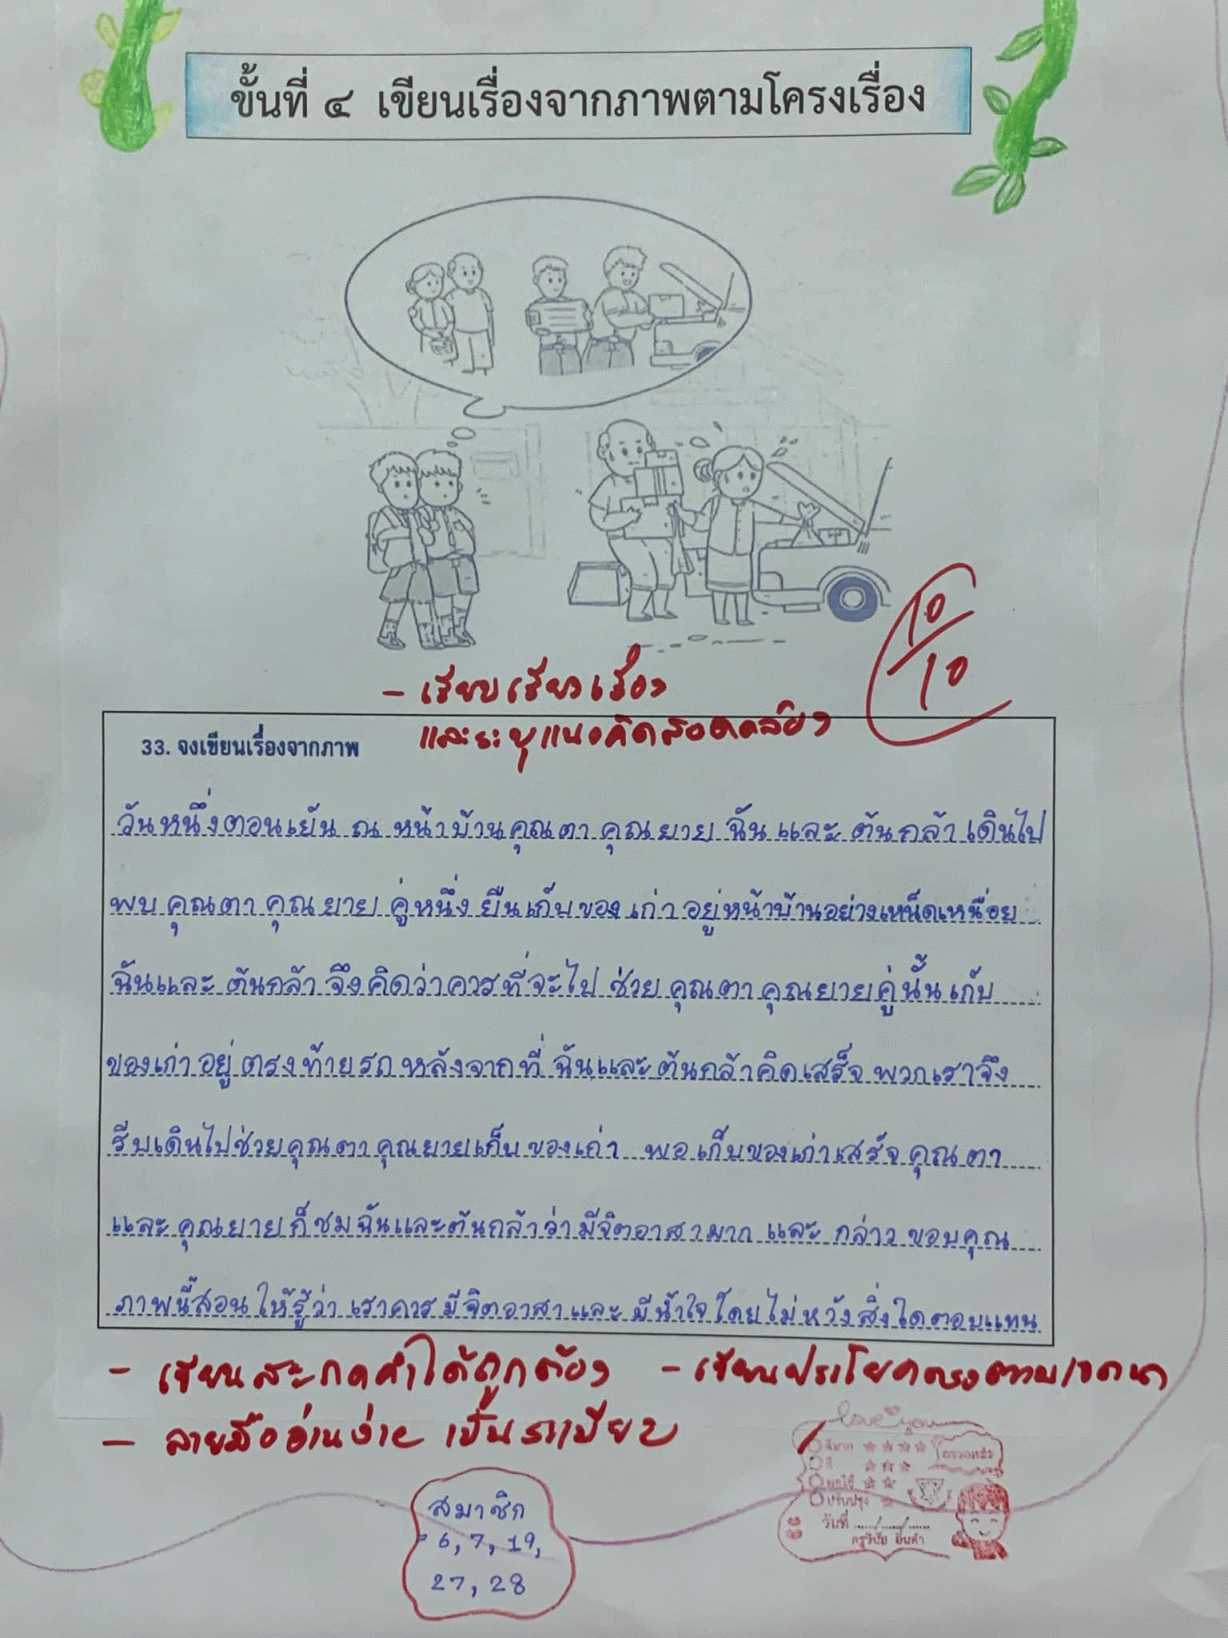 ขั้นที่ ๔ เขียนเรื่องจากภาพตามโครงเรื่อง
10
10
- เรียบเรียงเรื่อง
และระบุแนวคิดสอดคล้อง
33. จงเขียนเรื่องจากภาพ
วันหนึ่งตอนเย็น ณ หน้าบ้านคุณตา คุณยาย ฉันและ ต้นกล้า เดินไป
พบ คุณตา คุณยาย คู่หนึ่ง ยืนเก็บของเก่า อยู่หน้าบ้านอย่างเหน็ดเหนื่อย
ฉันและ ต้นกล้า จึงคิดว่าควรที่จะไป ช่วย คุณตา คุณยายคู่นั้น เก็บ
ของเก่า อยู่ ตรงท้ายรถ หลังจากที่ ฉันและ ต้นกล้าคิดเสร็จ พวกเราจึง
รีบเดินไปช่วยคุณตา คุณยายเก็บของเก่า พอเก็บของเก่าเสร็จ คุณตา
และ คุณยาย ก็ชมฉันและต้นกล้าว่า มีจิตอาสามาก และ กล่าว ขอบคุณ
ภาพนี้สอน ให้รู้ว่า เราควร มีจิตอาสา และ มีน้ำใจ โดยไม่หวังสิ่งใดตอบแทน
- เขียนสะกดคำได้ถูกต้อง - เขียนประโยคตรงตามเจตนา
- ลายมืออ่านง่าย เป็นระเบียบ
love you
ดีมาก
ดี
พอใช้
ปรับปรุง
ตรวจแล้ว
วันที่ ...../...../.....
สมาชิก
6, 7, 19,
27, 28